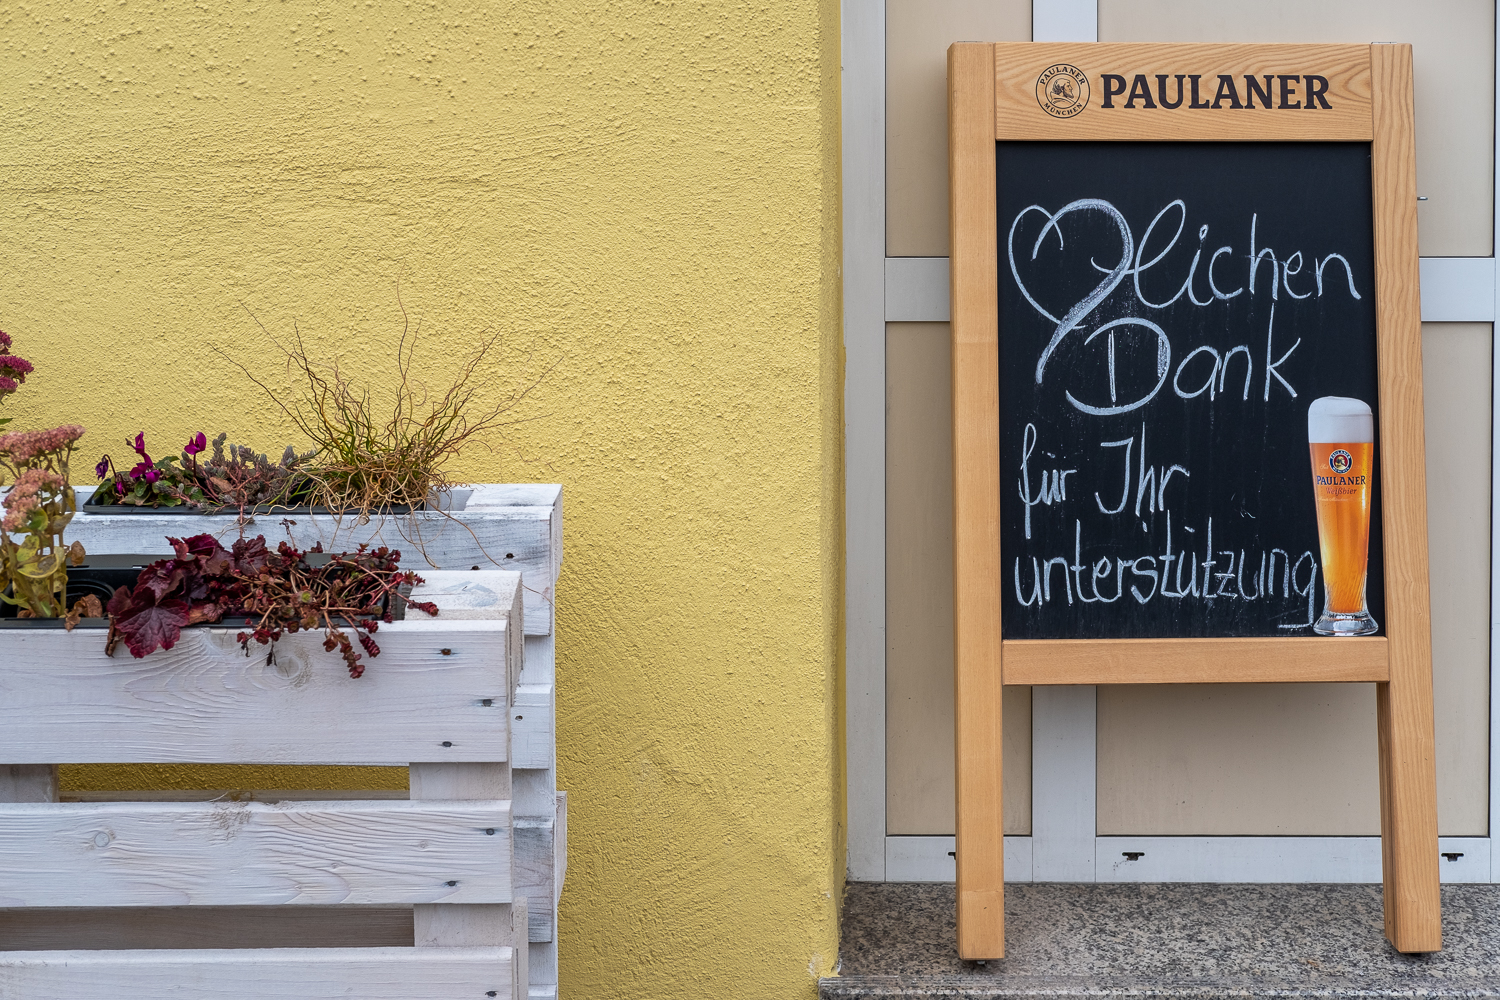 PAULANER MÜNCHEN
PAULANER
❤lichen
Dank
für Ihr
unterstützung
PAULANER
Weißbier